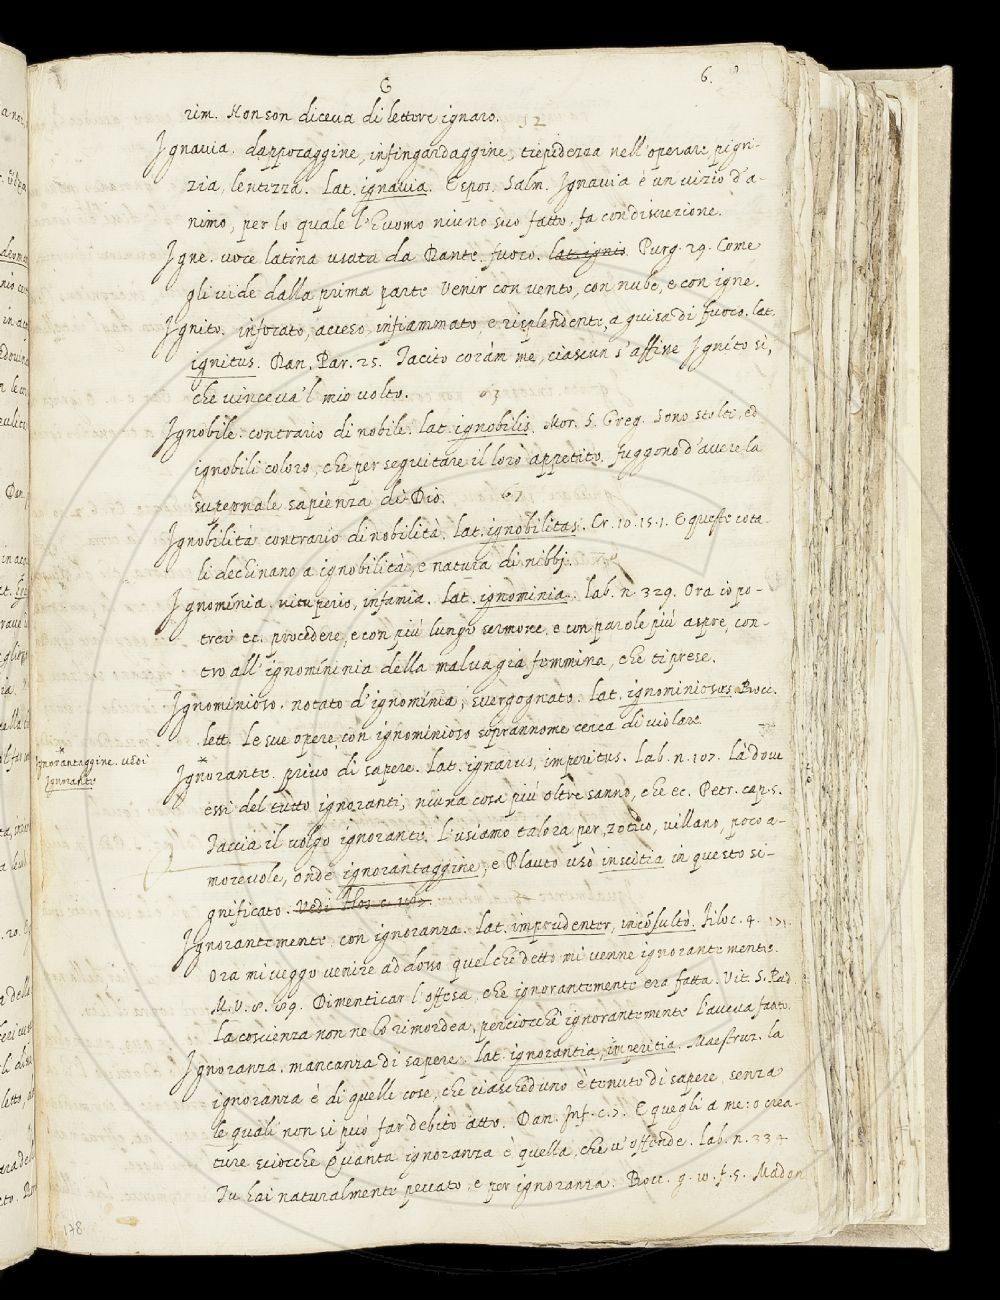 G
6.
rim. Non son diceva di lettere ignaro. 12
Ignavia. dappocaggine, infingardaggine, tiepidezza nell'operare, pigri-
zia, lentezza. Lat. ignavia. Espos. Salm. Ignavia è un vizio d'a-
nimo, per lo quale l'huomo niuno suo fatto, fa con discrezione.
Igne. voce latina usata da Dante. fuoco. lat. ignis. Purg. 29. Come
gli vide dalla prima parte Venir con vento, con nube, e con igne.
Ignito. infocato, acceso, infiammato, e risplendente, a guisa di fuoco. lat.
ignitus. Dan. Par. 25. Tacito coràm me, ciascun s'affine Ignito sì,
che vinceva 'l mio volto.
Ignobile. contrario di nobile. lat. ignobilis. Mor. S. Greg. Sono stolti, ed
ignobili coloro, che per seguitare il loro appetito, fuggono d'avere la
supernale sapienza di Dio.
Ignobilità contrario di nobilità. lat. ignobilitas. Cr. 10. 15. 1. E queste cota-
li dechinano a ignobilità, e natura di nibbj.
Ignomínia. vituperio, infamia. lat. ignominia. lab. n. 329. Ora io po-
trei ec. procedere, e con più lungo sermone, e con parole più aspre, con-
tro all'ignomíninia della malvagia femmina, che ti prese.
Ignominioso. notato d'ignomínia, svergognato. lat. ignominiosus. Bocc.
lett. Le sue opere con ignominioso soprannome cerca di violare.
* Ignorantaggine. vedi
Ignorante
Ignorante. privo di sapere. lat. ignarus, imperitus. Lab. n. 107. Là dove
essi del tutto ignoranti, niuna cosa più oltre sanno, che ec. Petr. cap. 5.
Taccia il volgo ignorante. L'usiamo talora per, zotico, villano, poco a-
morevole, onde ignorantaggine, e Plauto usò inscitia in questo si-
gnificato. Vedi
Ignorantemente. con ignoranza. lat. imprudenter, incōsultò. Filoc. 4. 171.
Ora mi veggo venire addosso quel che detto mi venne ignorantemente.
M. V. 8. 69. Dimenticar l'offesa, che ignorantemente era fatta. Vit. S. Pad.
La coscienza non ne lo rimordea, perciocchè ignorantemente l'aveva fatto.
Ignoranza. mancanza di sapere. lat. ignorantia, imperitia. Maestruz. la
ignoranza è di quelle cose, che ciascheduno è tenuto di sapere, senza
le quali non si può far debito atto. Dan. Inf. c. 7. E quegli a me: o crea-
ture sciocche Quanta ignoranza è quella, che v'offende. lab. n. 334
Tu hai naturalmente peccato, e per ignoranza. Bocc. g. 10. f. 5. Madon
178